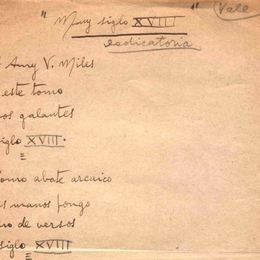 "Muy siglo XVIII" Vale
dedicatoria
Amy V. Miles
este tomo
os galantes
siglo XVIII.
omo abate arcaico
s manos pongo
o de versos
siglo XVIII